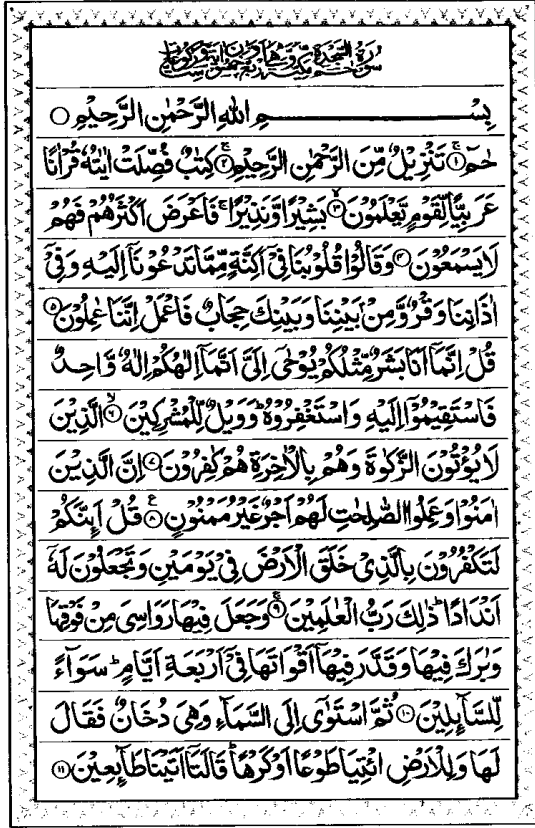 بِسْــــــمِ اللهِ الرَّحْمٰنِ الرَّحِيْمِ ○
حٰمٓ ۝۱ تَنْزِيْلٌ مِّنَ الرَّحْمٰنِ الرَّحِيْمِ ۝۲ كِتٰبٌ فُصِّلَتْ اٰيٰتُهٗ قُرْاٰنًا
عَرَبِيًّا لِّقَوْمٍ يَّعْلَمُوْنَ ۝۳ بَشِيْرًا وَّنَذِيْرًا ۚ فَاَعْرَضَ اَكْثَرُهُمْ فَهُمْ
لَا يَسْمَعُوْنَ ۝۴ وَقَالُوْا قُلُوْبُنَا فِيْٓ اَكِنَّةٍ مِّمَّا تَدْعُوْنَآ اِلَيْهِ وَفِيْٓ
اٰذَانِنَا وَقْرٌ وَّمِنْۢ بَيْنِنَا وَبَيْنِكَ حِجَابٌ فَاعْمَلْ اِنَّنَا عٰمِلُوْنَ ۝۵
قُلْ اِنَّمَآ اَنَا بَشَرٌ مِّثْلُكُمْ يُوْحٰٓى اِلَيَّ اَنَّمَآ اِلٰهُكُمْ اِلٰهٌ وَّاحِدٌ
فَاسْتَقِيْمُوْٓا اِلَيْهِ وَاسْتَغْفِرُوْهُ ؕ وَوَيْلٌ لِّلْمُشْرِكِيْنَ ۝۶ الَّذِيْنَ
لَا يُؤْتُوْنَ الزَّكٰوةَ وَهُمْ بِالْاٰخِرَةِ هُمْ كٰفِرُوْنَ ۝۷ اِنَّ الَّذِيْنَ
اٰمَنُوْا وَعَمِلُوا الصّٰلِحٰتِ لَهُمْ اَجْرٌ غَيْرُ مَمْنُوْنٍ ۝۸ قُلْ اَئِنَّكُمْ
لَتَكْفُرُوْنَ بِالَّذِيْ خَلَقَ الْاَرْضَ فِيْ يَوْمَيْنِ وَتَجْعَلُوْنَ لَهٗٓ
اَنْدَادًا ؕ ذٰلِكَ رَبُّ الْعٰلَمِيْنَ ۝۹ وَجَعَلَ فِيْهَا رَوَاسِيَ مِنْ فَوْقِهَا
وَبٰرَكَ فِيْهَا وَقَدَّرَ فِيْهَآ اَقْوَاتَهَا فِيْٓ اَرْبَعَةِ اَيَّامٍ ؕ سَوَآءً
لِّلسَّآئِلِيْنَ ۝۱۰ ثُمَّ اسْتَوٰٓى اِلَى السَّمَآءِ وَهِيَ دُخَانٌ فَقَالَ
لَهَا وَلِلْاَرْضِ ائْتِيَا طَوْعًا اَوْ كَرْهًا ؕ قَالَتَآ اَتَيْنَا طَآئِعِيْنَ ۝۱۱